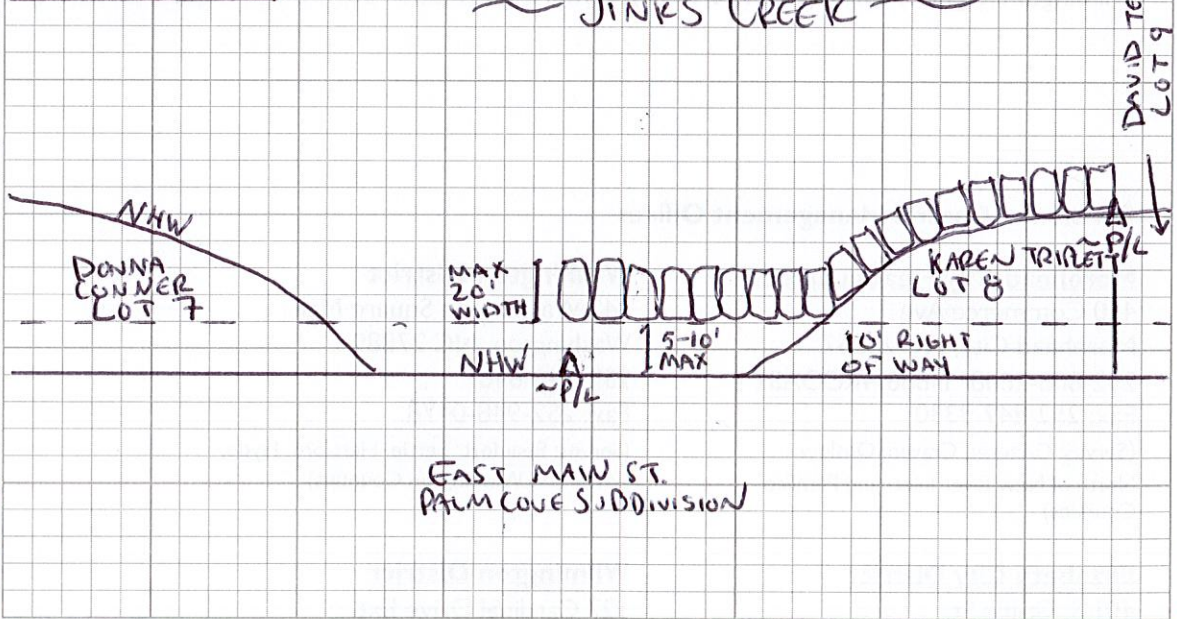 JINKS CREEK
DAVID TE
LOT 9
NHW
DONNA
CONNER
LOT 7
MAX
20'
WIDTH
KAREN TRIPLETT
LOT 8
~P/L
NHW
~P/L
5-10'
MAX
10' RIGHT
OF WAY
EAST MAIN ST.
PALM COVE SUBDIVISION